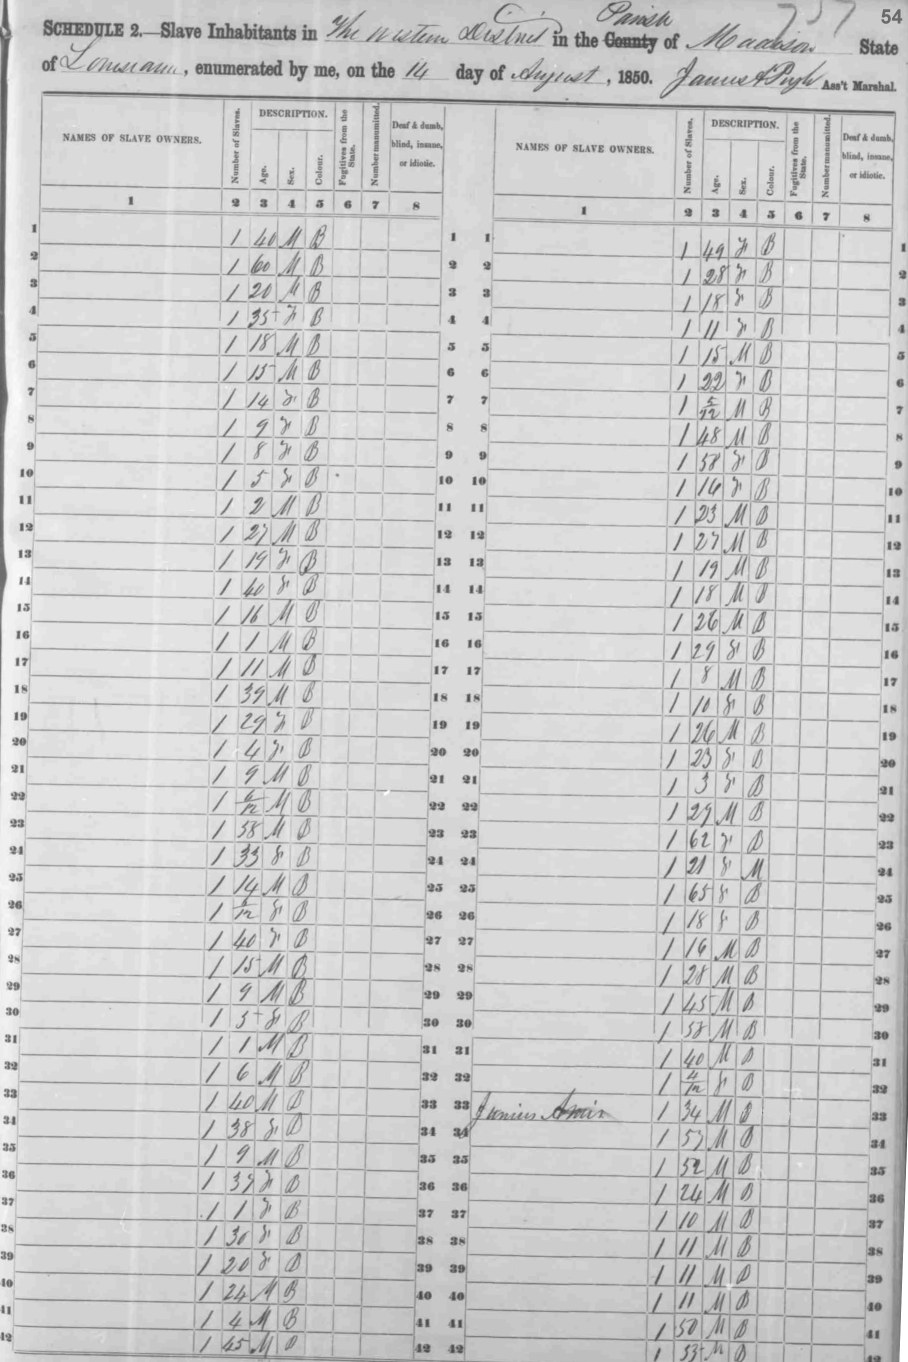 54
Parish
SCHEDULE 2.—Slave Inhabitants in The Western District in the County of Madison State
of Louisiana, enumerated by me, on the 14 day of August, 1850. James A Pugh Ass't Marshal.
NAMES OF SLAVE OWNERS. Number of Slaves. DESCRIPTION. Age. Sex. Colour. Fugitives from the State. Number manumitted. Deaf & dumb, blind, insane, or idiotic. NAMES OF SLAVE OWNERS. Number of Slaves. DESCRIPTION. Age. Sex. Colour. Fugitives from the State. Number manumitted. Deaf & dumb, blind, insane, or idiotic.
1 2 3 4 5 6 7 8 1 2 3 4 5 6 7 8
1 1 40 M B 1 1 1 49 F B 1
2 1 60 M B 2 2 1 28 F B 2
3 1 20 M B 3 3 1 18 F B 3
4 1 35 F B 4 4 1 11 F B 4
5 1 18 M B 5 5 1 15 M B 5
6 1 15 M B 6 6 1 22 F B 6
7 1 14 F B 7 7 1 5/12 M B 7
8 1 9 F B 8 8 1 48 M B 8
9 1 8 F B 9 9 1 58 F B 9
10 1 5 F B 10 10 1 16 F B 10
11 1 2 M B 11 11 1 23 M B 11
12 1 27 M B 12 12 1 27 M B 12
13 1 19 F B 13 13 1 19 M B 13
14 1 40 F B 14 14 1 18 M B 14
15 1 16 M B 15 15 1 26 M B 15
16 1 1 M B 16 16 1 29 F B 16
17 1 11 M B 17 17 1 8 M B 17
18 1 39 M B 18 18 1 10 F B 18
19 1 29 F B 19 19 1 26 M B 19
20 1 4 F B 20 20 1 23 F B 20
21 1 9 M B 21 21 1 3 F B 21
22 1 6/12 M B 22 22 1 29 M B 22
23 1 58 M B 23 23 1 62 F B 23
24 1 33 F B 24 24 1 21 F M 24
25 1 14 M B 25 25 1 65 F B 25
26 1 /12 F B 26 26 1 18 F B 26
27 1 40 F B 27 27 1 16 M B 27
28 1 15 M B 28 28 1 28 M B 28
29 1 9 M B 29 29 1 45 M B 29
30 1 5 F B 30 30 1 58 M B 30
31 1 1 M B 31 31 1 40 M B 31
32 1 6 M B 32 32 1 4/12 F B 32
33 1 40 M B 33 33 Junius Amis 1 34 M B 33
34 1 38 F B 34 34 1 57 M B 34
35 1 9 M B 35 35 1 52 M B 35
36 1 37 F B 36 36 1 24 M B 36
37 1 1 F B 37 37 1 10 M B 37
38 1 30 F B 38 38 1 11 M B 38
39 1 20 F B 39 39 1 11 M B 39
40 1 24 M B 40 40 1 11 M B 40
41 1 4 M B 41 41 1 50 M B 41
42 1 45 M B 42 42 1 53 M B 42